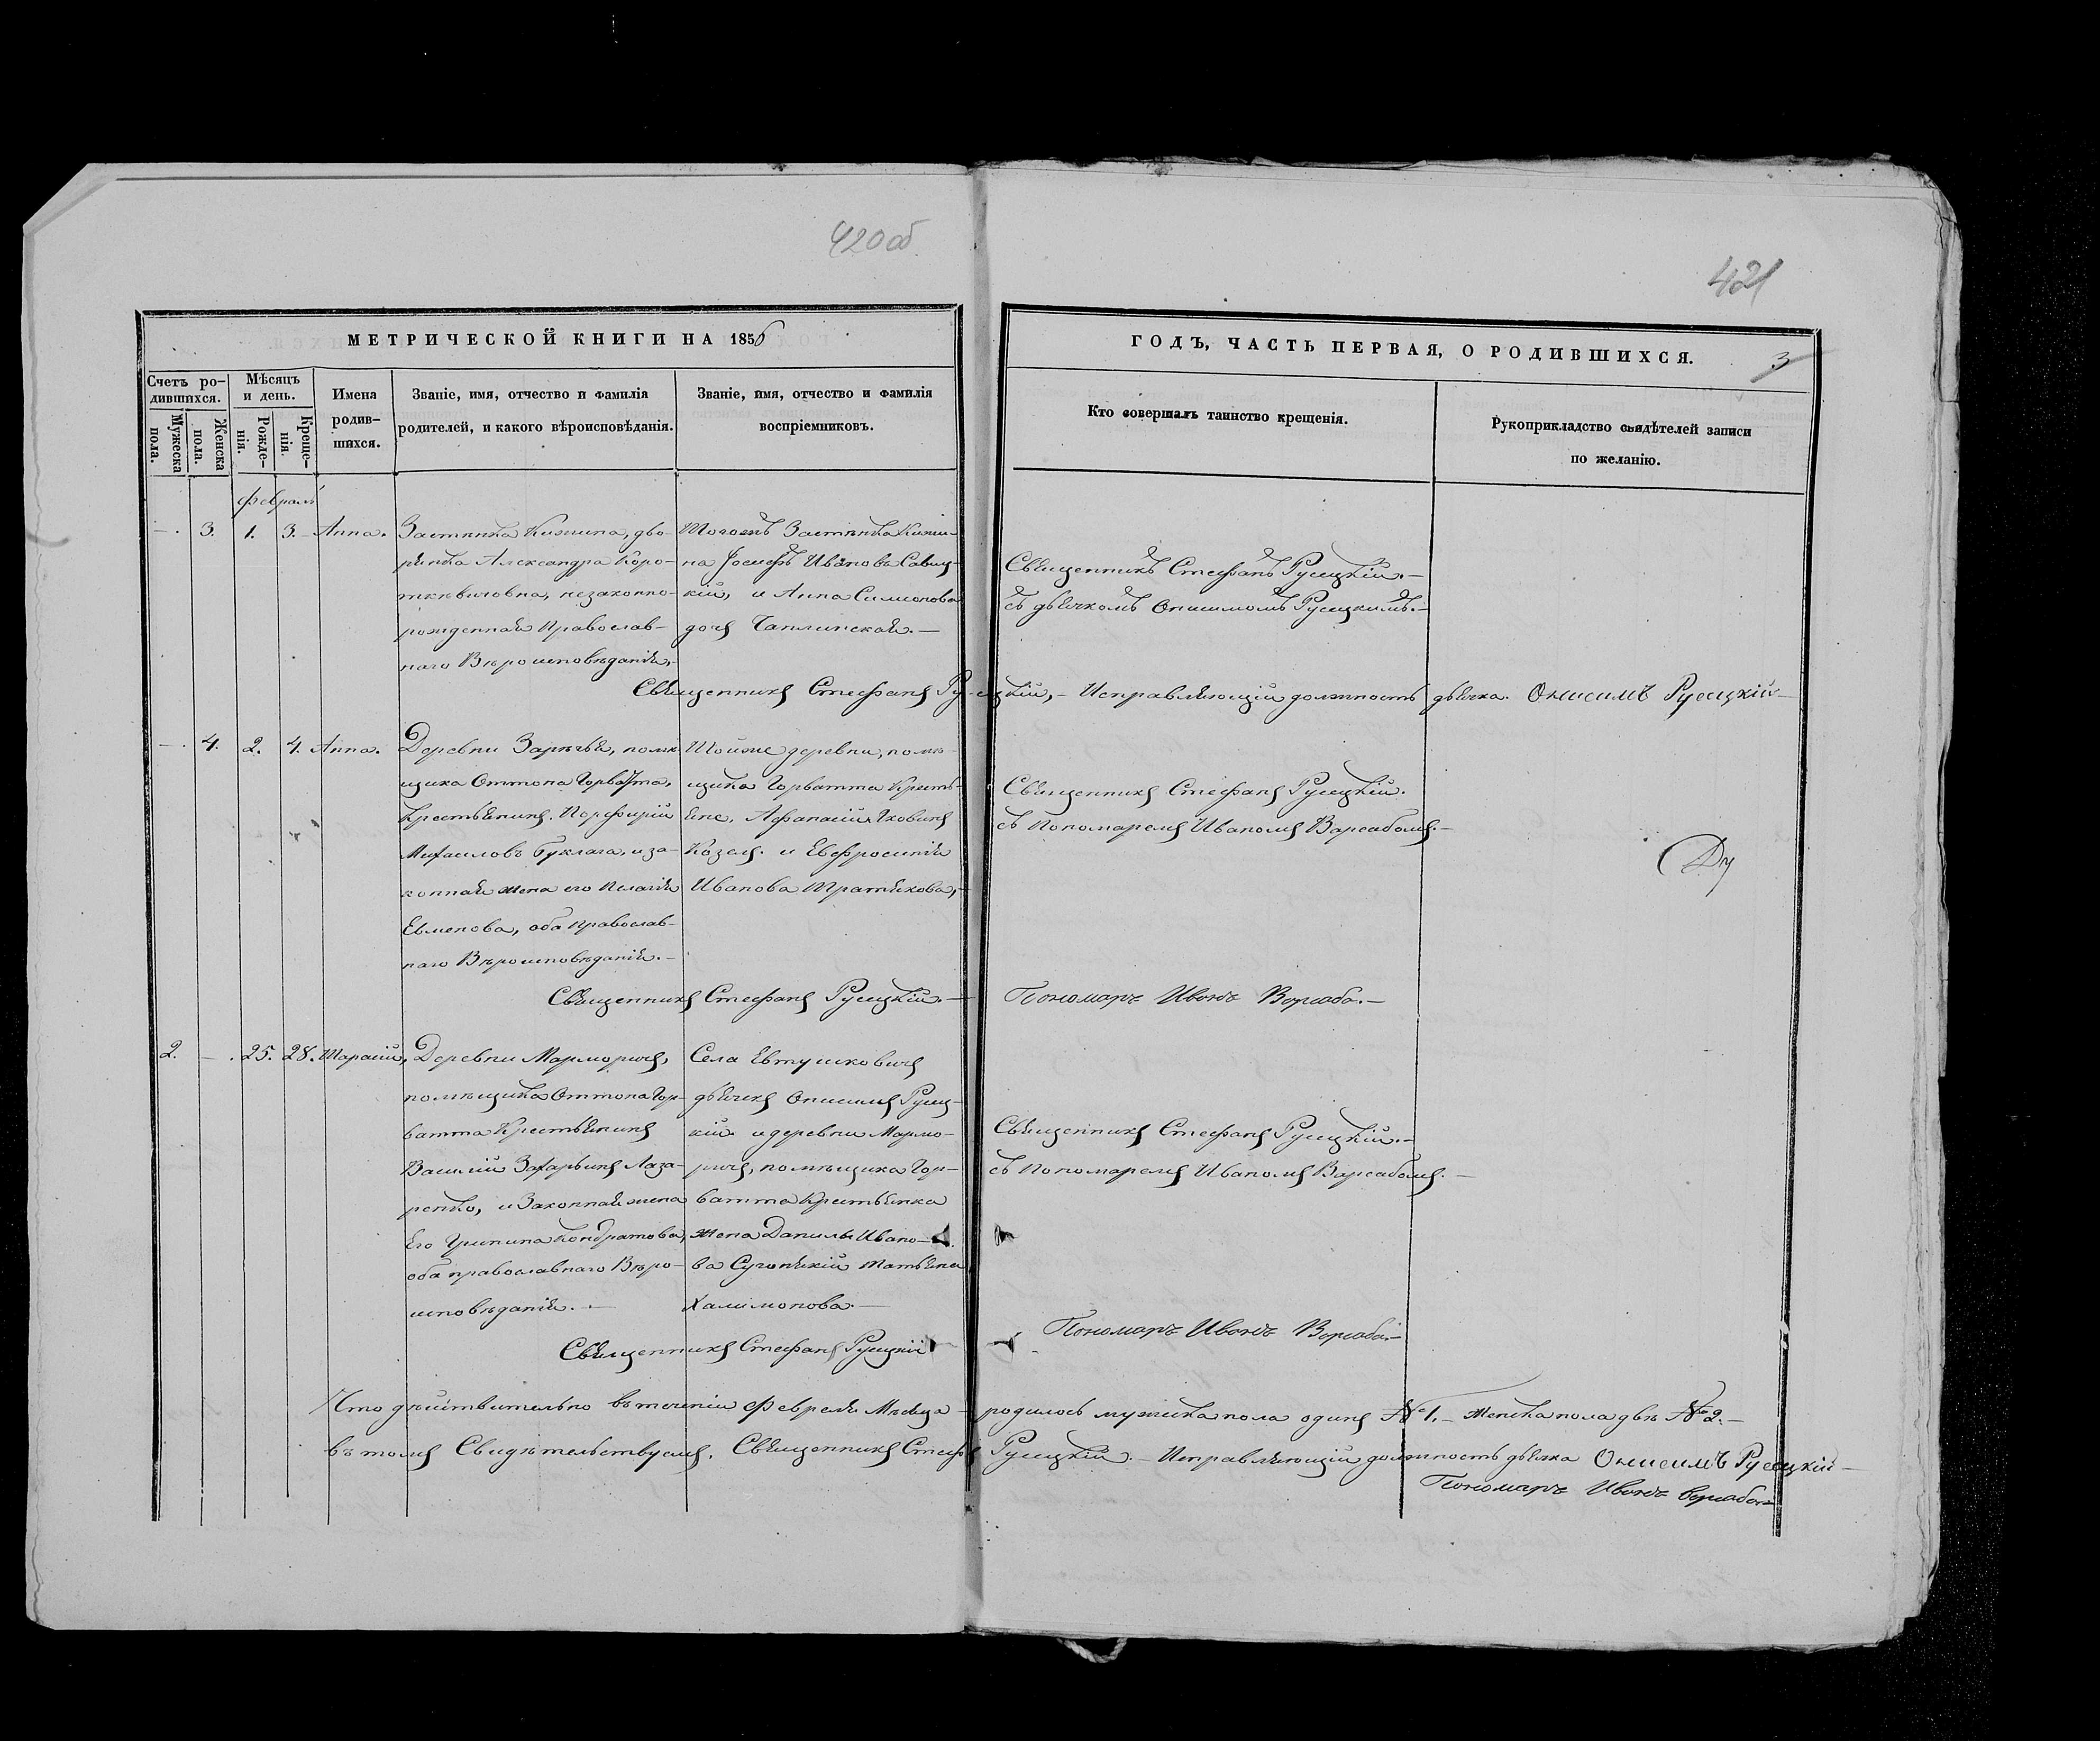 420об
421
МЕТРИЧЕСКОЙ КНИГИ НА 1856
ГОДЪ, ЧАСТЬ ПЕРВАЯ, О РОДИВШИХСЯ.
3
Счетъ ро-
дившихся.
Мужеска
пола.
Женска
пола.
Мѣсяцъ
и день.
Рожде-
нія.
Креще-
нія.
Имена
родив-
шихся.
Званіе, имя, отчество и фамилія
родителей, и какого вѣроисповѣданія.
Званіе, имя, отчество и фамилія
воспріемниковъ.
Кто совершалъ таинство крещенія.
Рукоприкладство свидѣтелей записи
по желанію.
Февраль
3. 1. 3. Анна.
Застѣнка Кижина, дво-
рянка Александра Коро-
ткевичовна, незаконно-
рожденная Православ-
наго Вѣроисповѣданія.
Тогожъ Застѣнка Кижи-
на Іосифъ Ивановъ Савиц-
кій, и Анна Симонова
дочь Чаплинская.—
Священникъ Стефанъ Русецкій.—
съ дьячкомъ Онисимомъ Русецкимъ.—
Священникъ Стефанъ Русецкій,— Исправляющій должность дьячка. Онисимъ Русецкій—
4. 2. 4. Анна.
Деревни Зарѣчья, помѣ-
щика Оттона Горватта,
Крестьянинъ. Порфирій
Михаиловъ Буклага, и за-
конная жена его Пелагія
Евменова, оба православ-
наго Вѣроисповѣданія.—
Тойже деревни, помѣ-
щика Горватта Крестья-
яне, Афанасій Яковинъ
Козелъ. и Евфросинія
Иванова
Священникъ Стефанъ Русецкій.
съ Пономаремъ Иваномъ Варсабомъ.—
Священникъ Стефанъ Русецкій.—
Пономаръ Иванъ Варсаба.—
2. —. 25. 28. Тарасій,
Деревни Марморичъ,
помѣщика Оттона Гор-
ватта Крестьянинъ
Василій Захарьинъ Лаза-
ренко, и Законная жена
Его Грипина Кондратова,
оба православнаго Вѣро-
исповѣданія.—
Села Евтушковичъ
дьячекъ Онисимъ Русец-
кій. и деревни Мармо-
ричъ, помѣщика Гор-
ватта Крестьянка
жена Данилы Ивано-
ва Татьяна
Халимонова.—
Священникъ Стефанъ Русецкій.—
съ Пономаремъ Иваномъ Варсабомъ.—
Священникъ Стефанъ Русецкій
Пономаръ Иванъ Варсаба.—
Что дѣйствительно въ теченіи Февраля Мѣсяца— родилось мужеска пола одинъ №1.— Женска пола двѣ №2.—
въ томъ Свидѣтельствуемъ. Священникъ Стефанъ Русецкій.— Исправляющій должность дьячка Онисимъ Русецкій—
Пономаръ Иванъ Варсаба